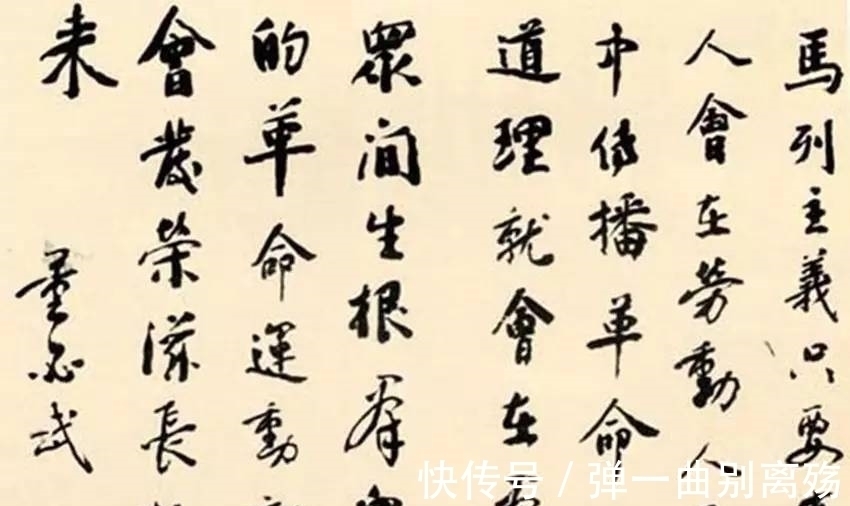 馬列主義只要
人會在勞動人
中傳播革命
道理就會在
眾间生根羣
的革命運動
會發榮滋長
来
董必武
快传号 / 弹一曲别离殇